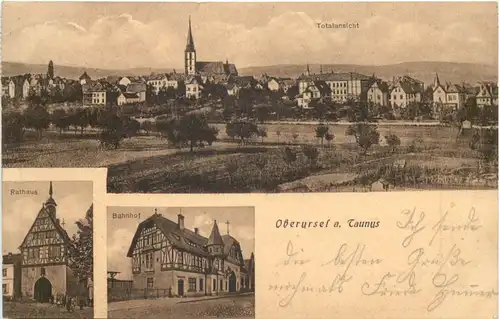 Totalansicht
Rathaus
Bahnhof
Oberursel a. Taunus
Ich sende
die besten Grüße
nochmals Fried